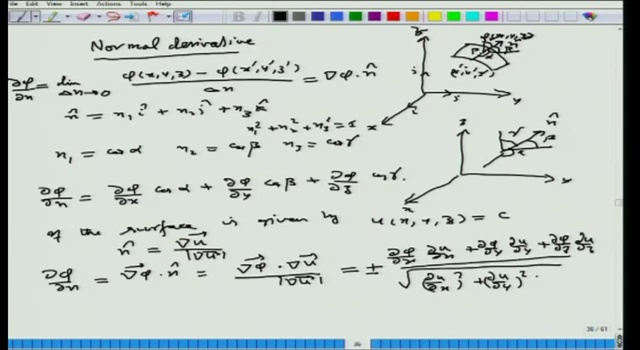 Edit View Insert Actions Tools Help
Normal derivative
∂φ/∂n = lim Δn→0 (φ(x,y,z) − φ(x',y',z'))/Δn = ∇φ·n̂
n̂ = n₁ î + n₂ ĵ + n₃ k̂
n₁² + n₂² + n₃² = 1
n₁ = cos α n₂ = cos β n₃ = cos γ
∂φ/∂n = ∂φ/∂x cos α + ∂φ/∂y cos β + ∂φ/∂z cos γ.
of the surface is given by u(x,y,z) = c
n̂ = ∇u/|∇u|
∂φ/∂n = ∇φ·n̂ = ∇φ·∇u/|∇u| = ± (∂φ/∂x ∂u/∂x + ∂φ/∂y ∂u/∂y + ∂φ/∂z ∂u/∂z)/√((∂u/∂x)² + (∂u/∂y)²
z
φ(x,y,z)
(x',y',z')
y
x
z
n̂
γ
β
α
y
x
36 / 61
36